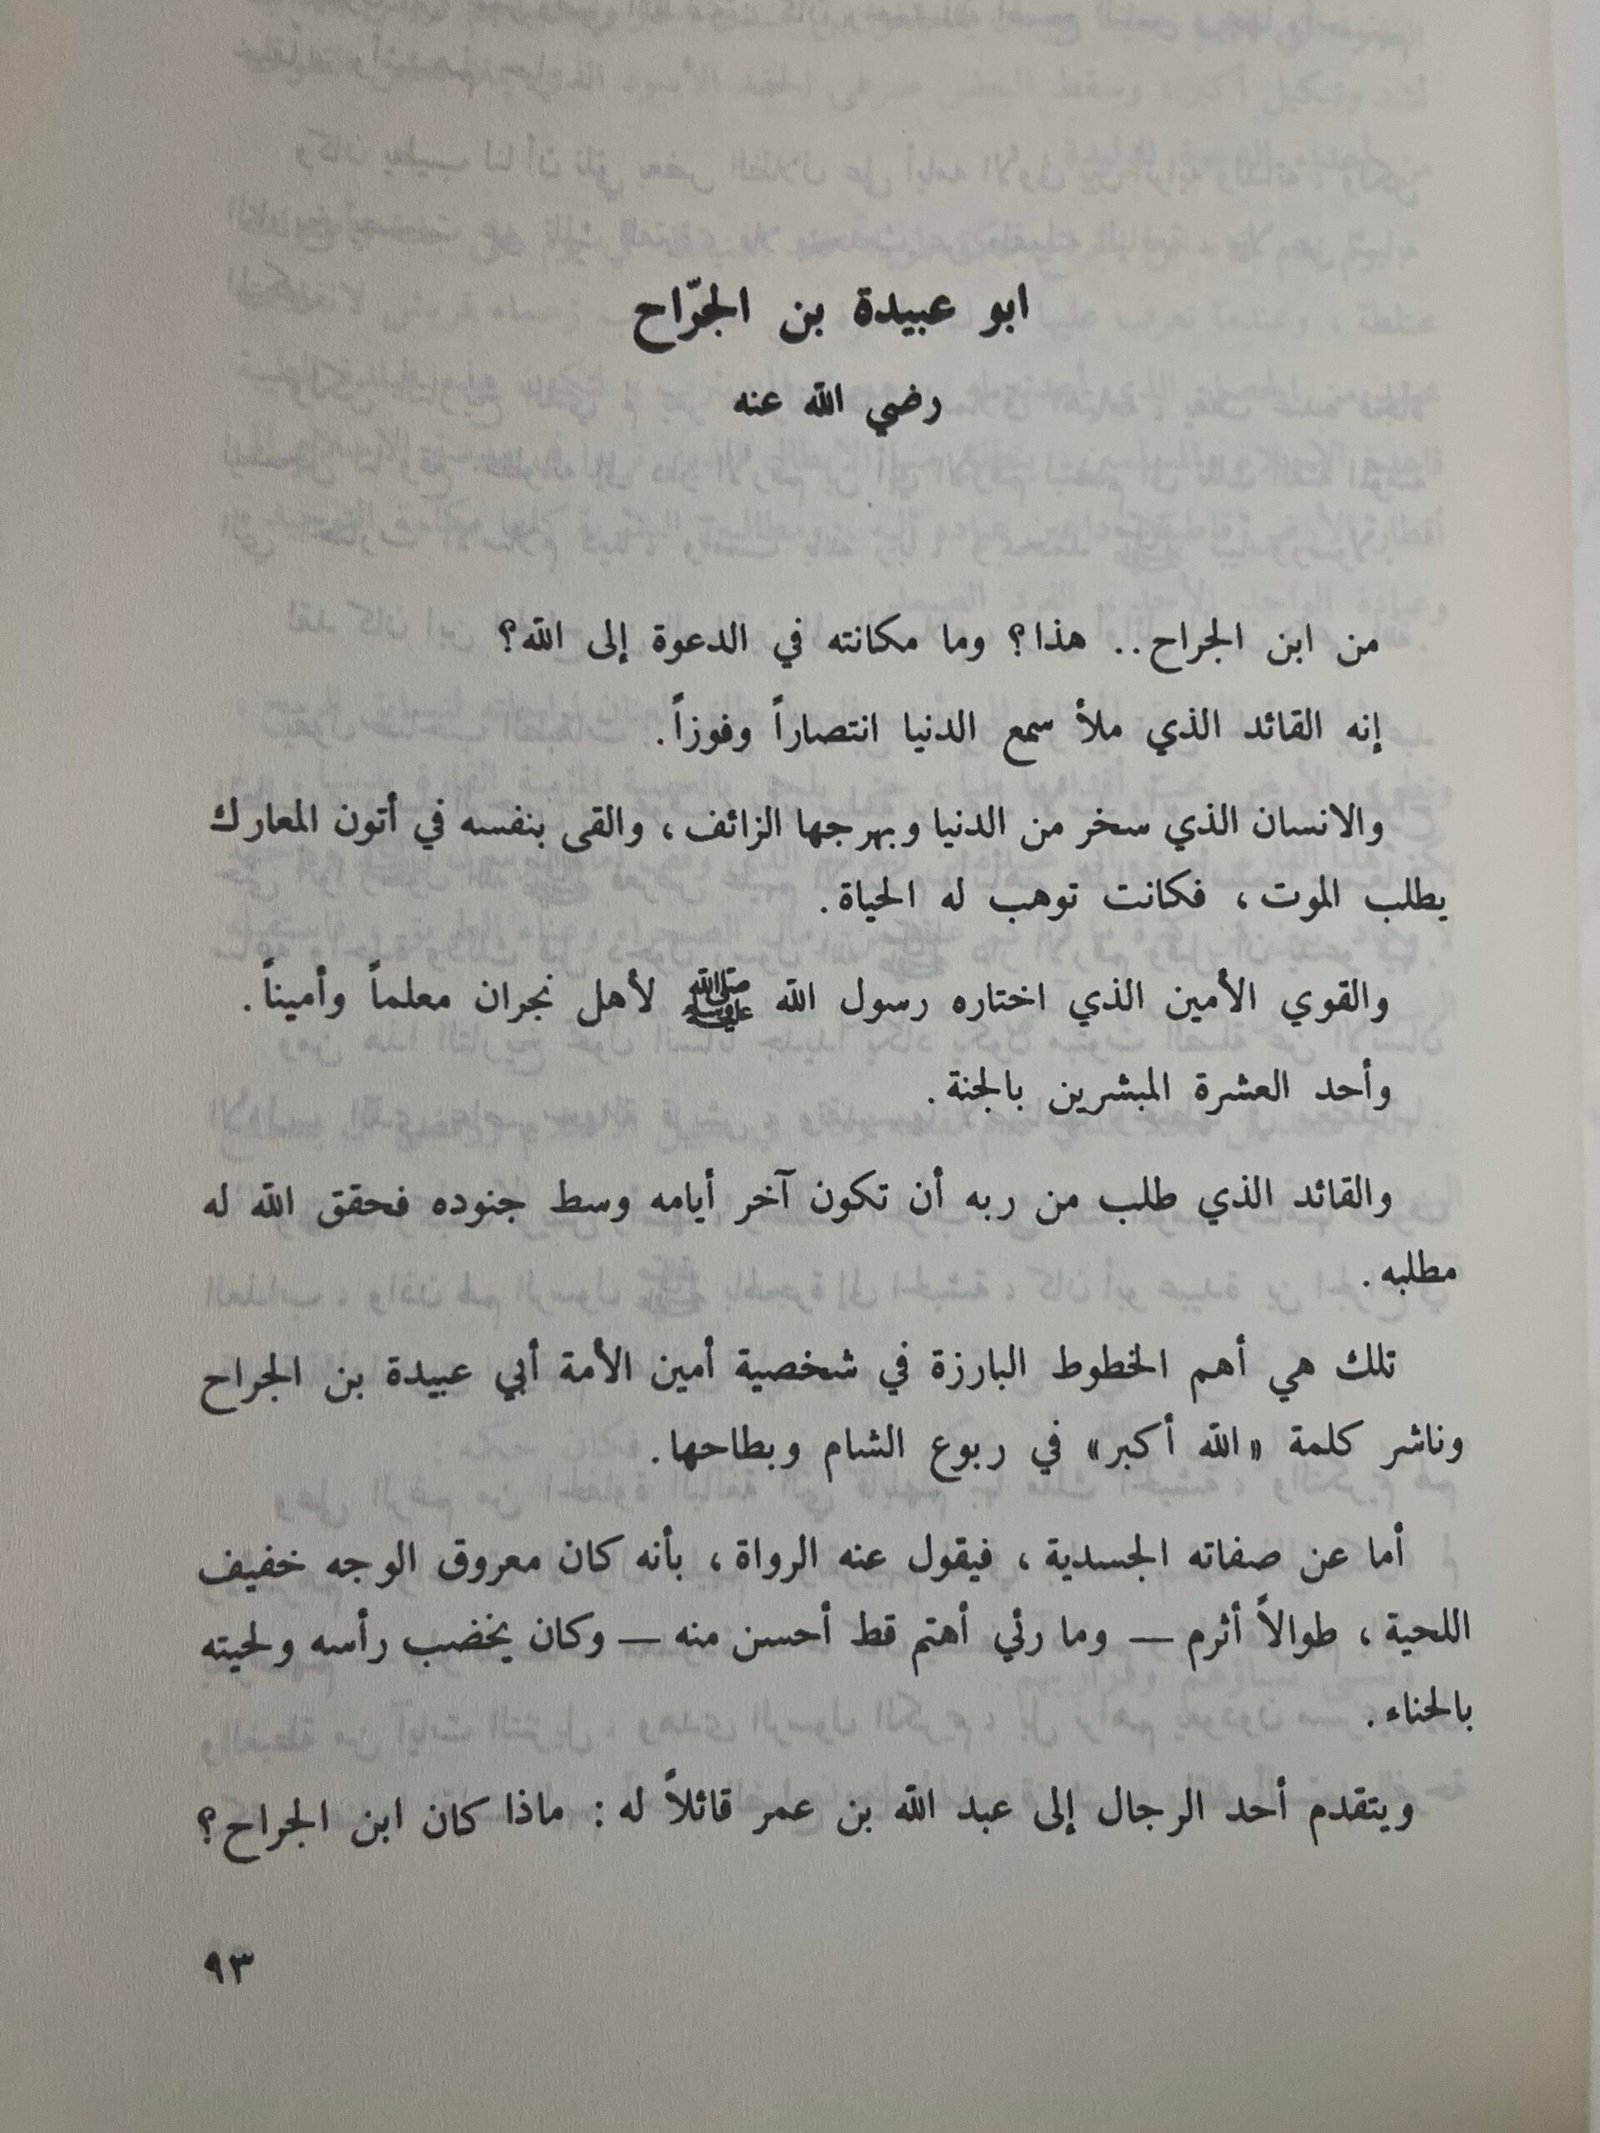 ابو عبيدة بن الجرّاح
رضي الله عنه
من ابن الجراح.. هذا؟ وما مكانته في الدعوة إلى الله؟
إنه القائد الذي ملأ سمع الدنيا انتصاراً وفوزاً.
والانسان الذي سخر من الدنيا وبهرجها الزائف، والقى بنفسه في أتون المعارك
يطلب الموت، فكانت توهب له الحياة.
والقوي الأمين الذي اختاره رسول الله ﷺ لأهل نجران معلماً وأميناً.
وأحد العشرة المبشرين بالجنة.
والقائد الذي طلب من ربه أن تكون آخر أيامه وسط جنوده فحقق الله له
مطلبه.
تلك هي أهم الخطوط البارزة في شخصية أمين الأمة أبي عبيدة بن الجراح
وناشر كلمة «الله أكبر» في ربوع الشام وبطاحها.
أما عن صفاته الجسدية، فيقول عنه الرواة، بأنه كان معروق الوجه خفيف
اللحية، طوالاً أثرم — وما رئي أهتم قط أحسن منه — وكان يخضب رأسه ولحيته
بالحناء.
ويتقدم أحد الرجال إلى عبد الله بن عمر قائلاً له: ماذا كان ابن الجراح؟
٩٣